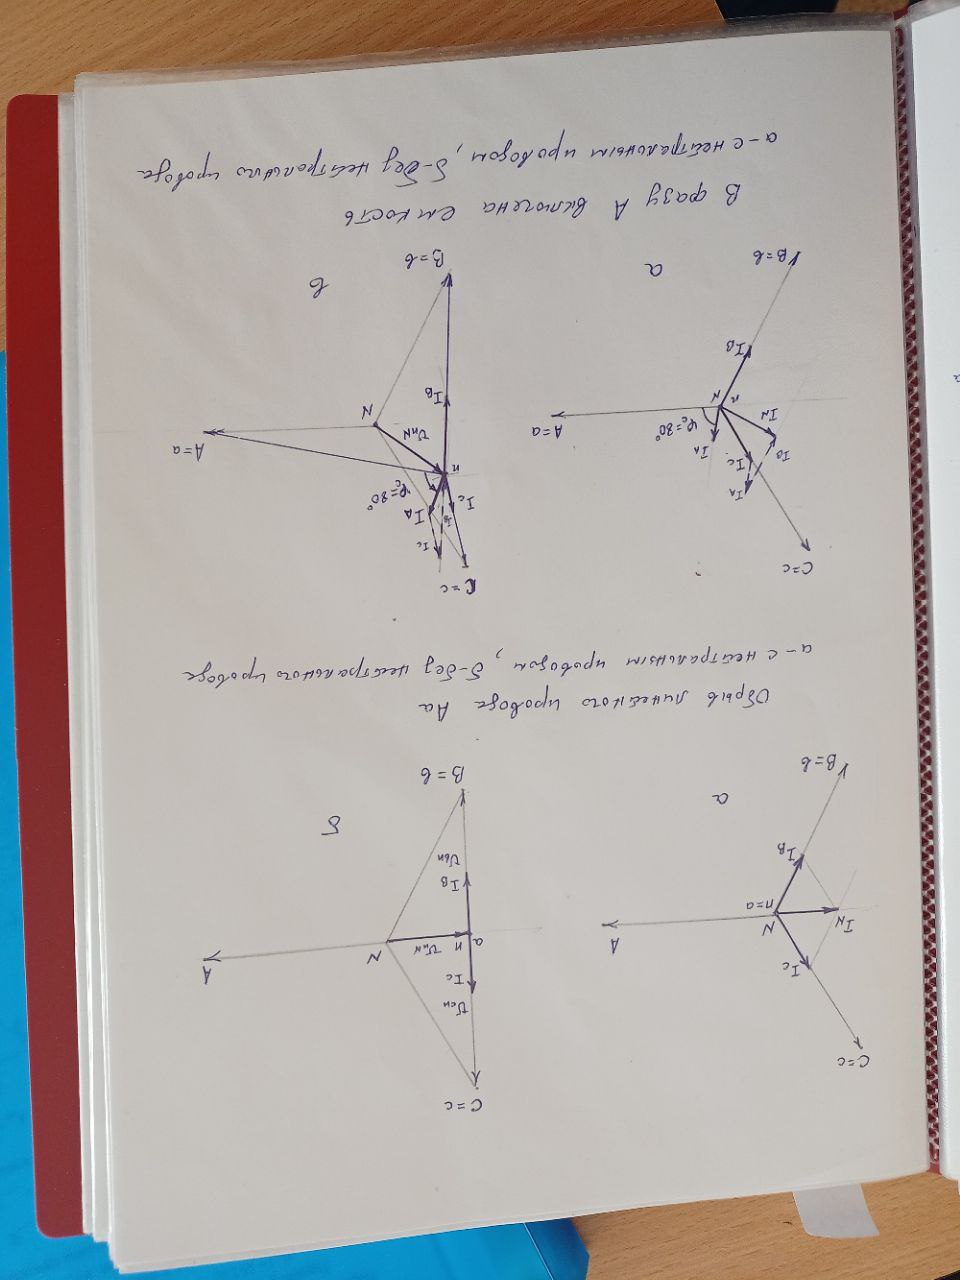 C = c
I_C
I_N
N
A
n=a
I_B
B = b
а
C = c
U_cn
I_C
a
n
U_nN
N
A
I_B
U_bn
B = b
б
Обрыв линейного провода Аа
а – с нейтральным проводом, б – без нейтрального провода
C = c
I_A
I_B
I_C
I_A
I_N
φ_c=80°
A = a
n
N
I_B
B = b
а
C = c
I_C
I_B
I_A
I_C
φ_c=80°
n
U_nN
A = a
N
I_B
B = b
в
В фазу А включена емкость
а – с нейтральным проводом, б – без нейтрального провода